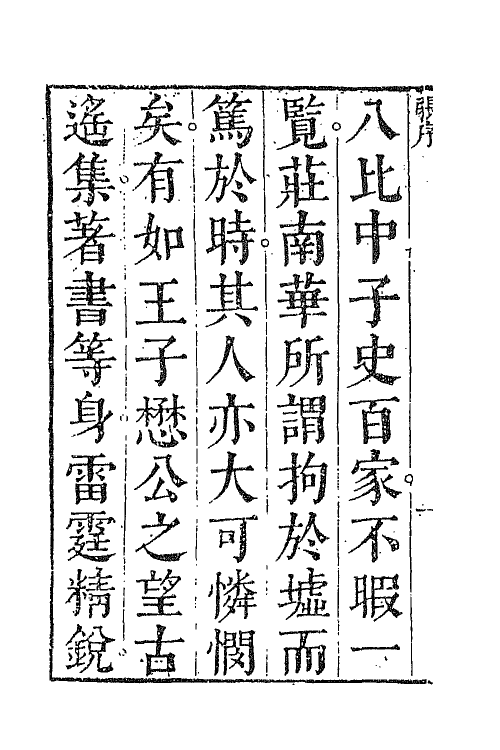 八比中子史百家不暇一
覽莊南華所謂拘於墟而
篤於時其人亦大可憐憫
矣有如王子懋公之望古
遙集著書等身雷霆精銳
張序
一